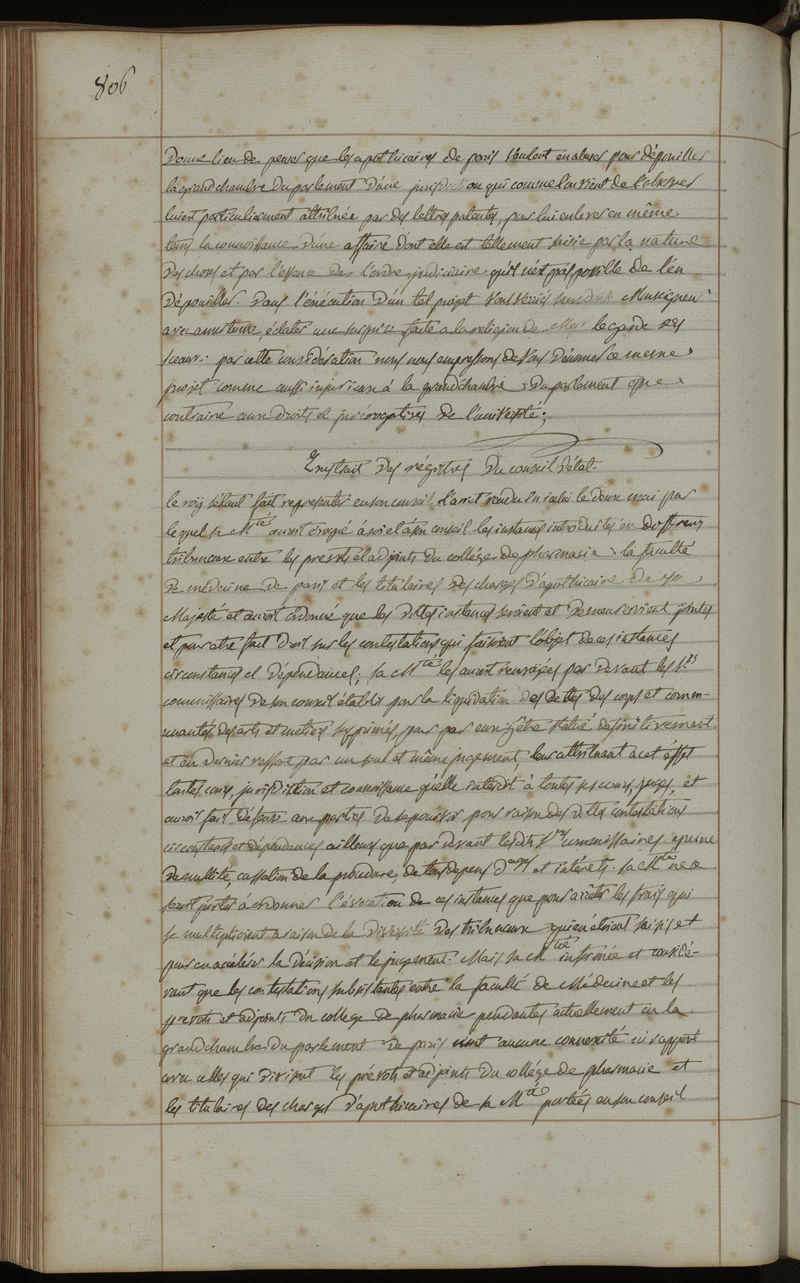 806
Donne lieu de penser que les apothicaires de paris veulent en abuser pour dépouiller
la grand chambre du parlement d'une jurisdiction qui comme l'on vient de l'observer
lui est particulièrement attribuée par des lettres patentes, pour lui enlever en même
tems la connoissance d'une affaire dont elle est tellement saisie par la nature
des choses et par l'essence de l'ordre judiciaire qu'il n'est pas possible de l'en
dépouiller. Dans l'exécution d'un tel projet vous Monseigneur
avec amertume, éclater une surprise faite a la religion de Mgr le garde des
sceaux: par cette considération nous nous empressons de vous dénoncer ce meme
projet comme aussi injurieux à la grand chambre du parlement que
contraire aux droits et prerogatives de l'université;
Extrait des régistres du conseil d'état
le roy s'étant fait representer en son conseil l'arret rendu en icelui le deux mai par
lequel sa Mté auroit évoqué à soi et à son conseil les instances introduites en différens
tribuneaux entre les prevots et adjoints du collége de pharmacie, la faculté
de médecine de paris et les titulaires des charges d'apothicaire de sa
Majesté et auroit ordonné que les dittes instances seroient et demeureroient jointes
et pour etre fait droit sur les contestations qui faisoient l'objet de ces instances
circonstances et dépendances; sa Mté les auroit renvoyés par devant les Srs
commissaires de son conseil établis pour la liquidation des dettes des corps et commu-
nautés des arts et metiers supprimés, pour par eux y être statué definitivement
et en dernier ressort par un seul et même jugement, leur attribuant à cet effet
toutes cour, jurisdiction et connoissance qu'elle interdit à toutes ses cours, juges, et
auroit fait défense aux parties de se pourvoir pour raison des dittes contestations
circonstances et dépendances ailleurs que par devant lesdits Srs commissaires a peine
de nullité, cassation de la procédure, de tous depens dages et intérets. sa Mté ne se
seroit portée à ordonner l'évocation de ces instances que pour arrêter les frais qui
se multiplioient a raison de la diversité des tribuneaux qui en étoient saisis et
pour en accélérer la décision et le jugement. Mais sa Mté informée et considé-
rant que les contestations subsistantes entre la faculté de Médecine et les
prevots et adjoints du college de pharmacie pendantes actuellement en la
grand chambre du parlement de paris n'ont aucune connexité ni rapport
avec celles qui divisent les prévots et adjoints du collége de pharmacie et
les titulaires des charges d'apothicaires de sa Mté portées en son conseil